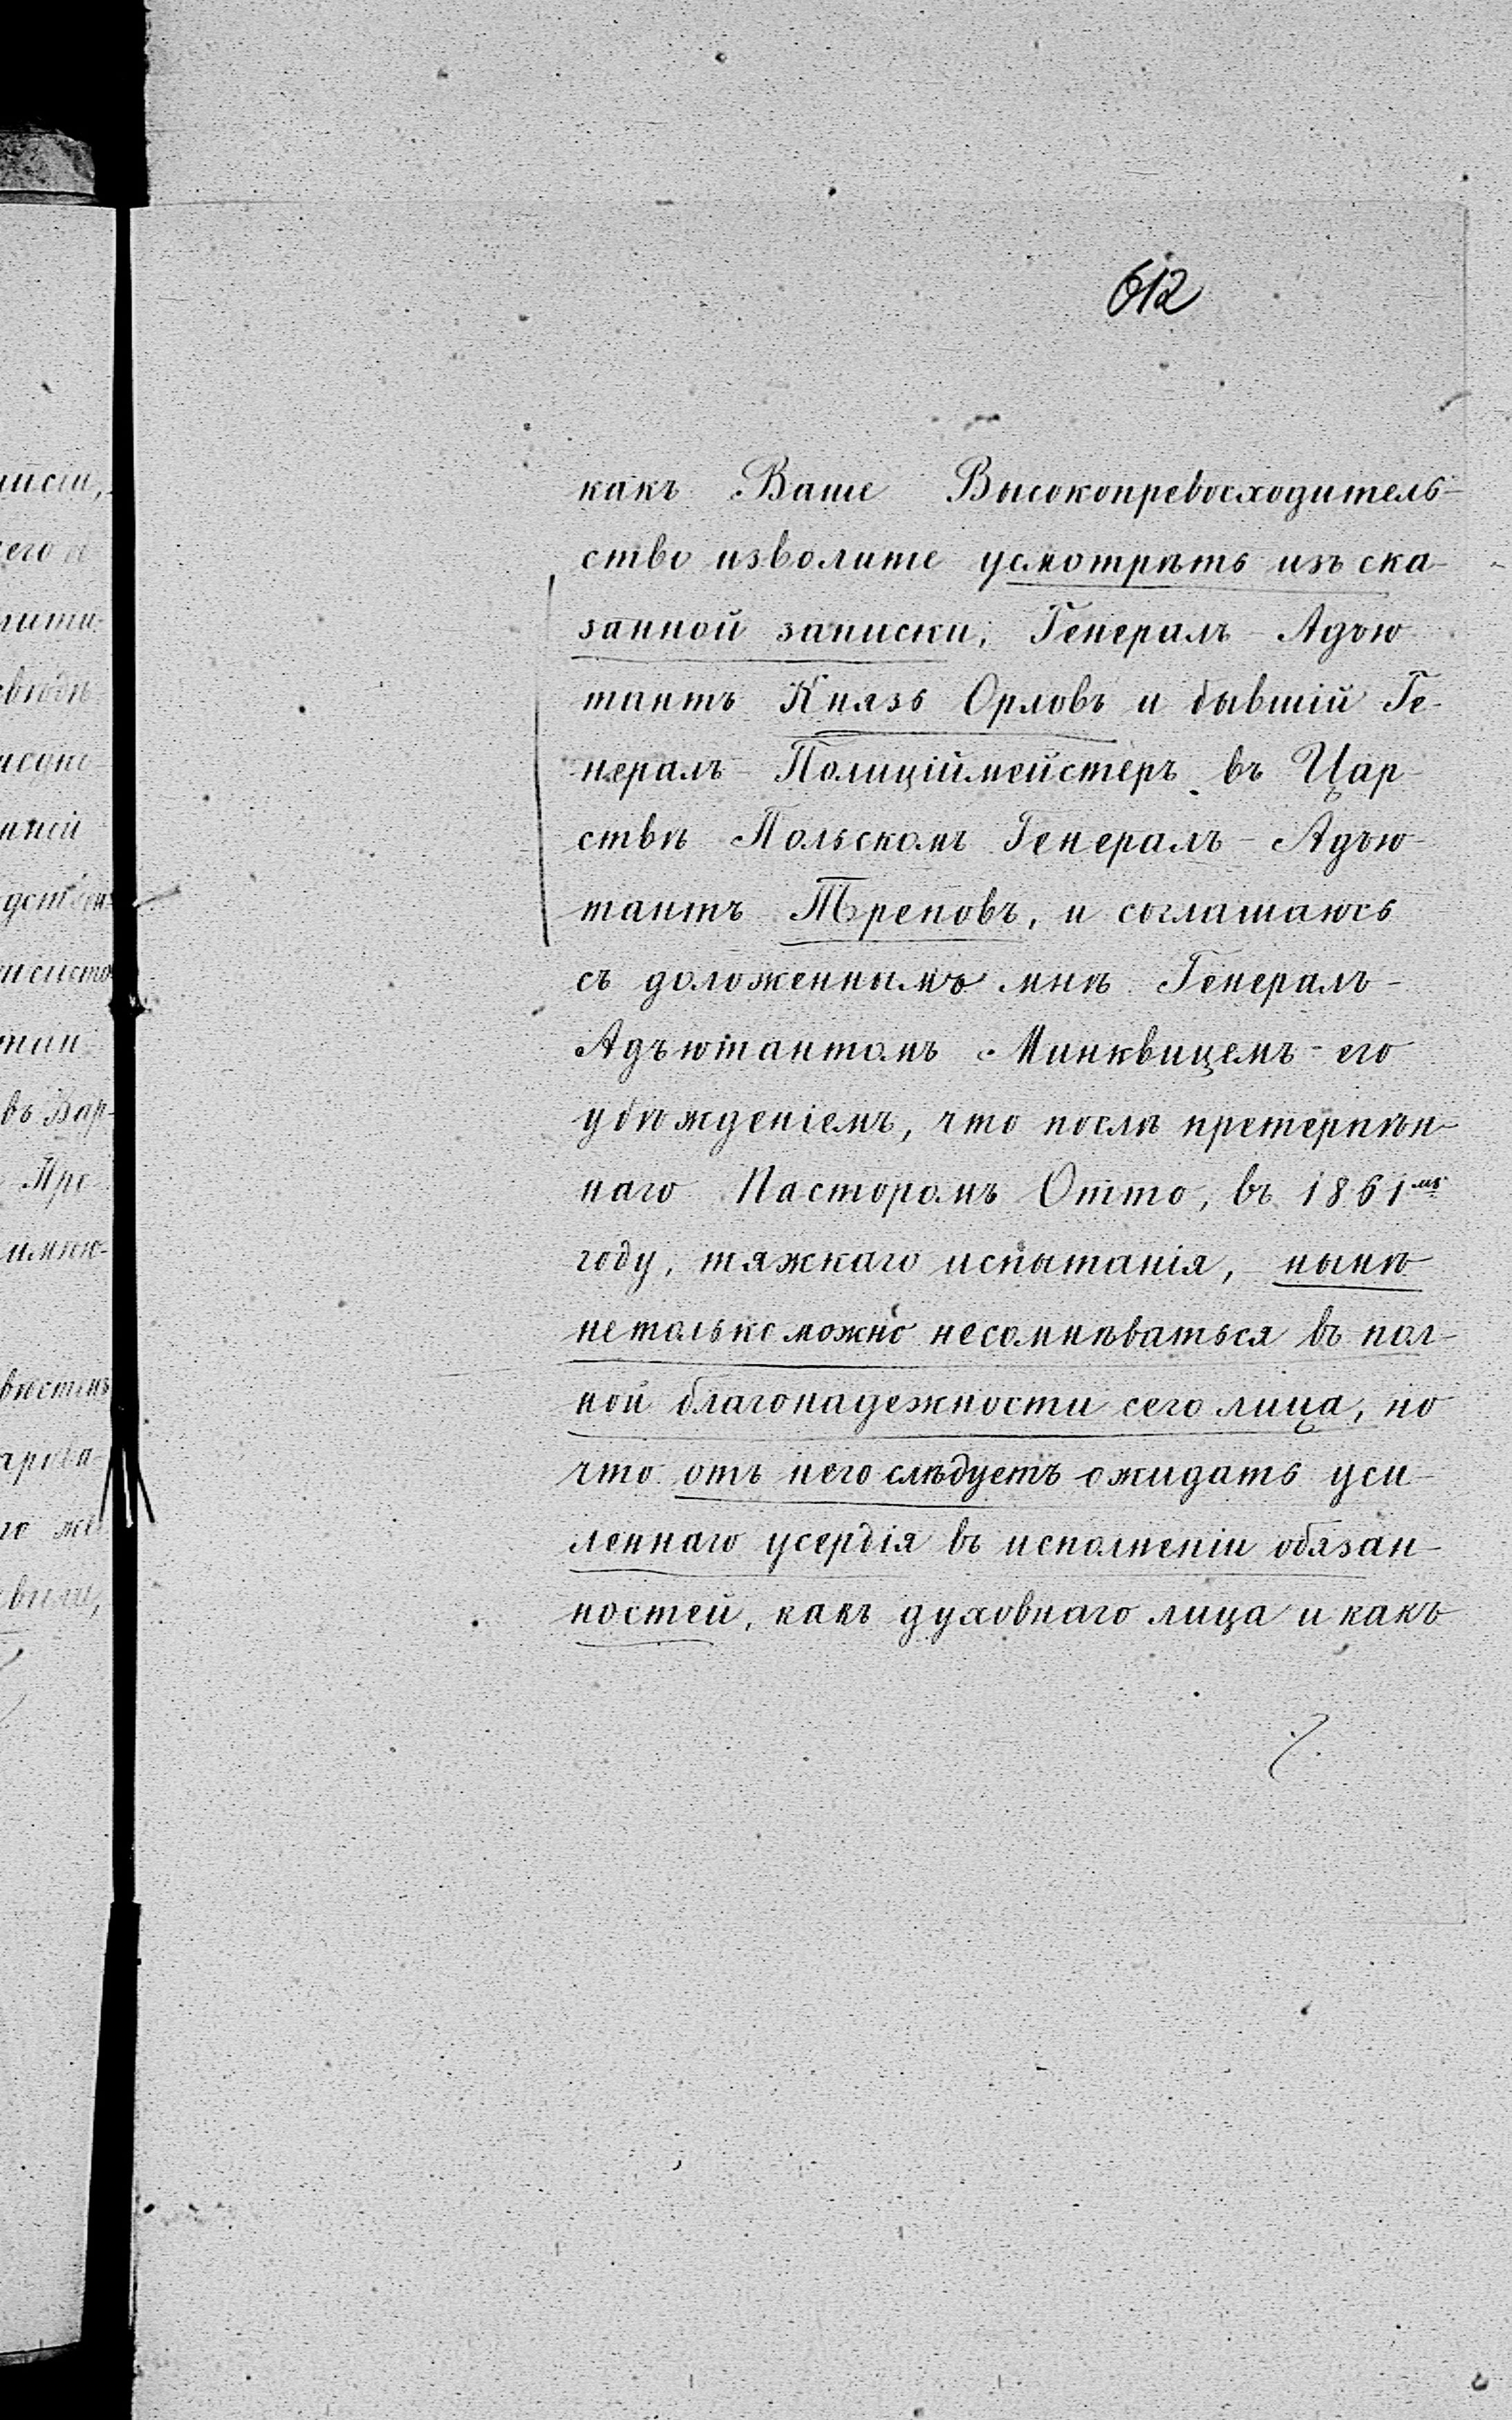 612
какъ Ваше Высокопревосходитель-
ство изволите усмотрѣть изъ ска-
занной записки, Генералъ-Адъю-
тантъ Князь Орловъ и бывшій Ге-
нералъ-Полиціймейстеръ въ Цар-
ствѣ Польскомъ Генералъ-Адъю-
тантъ Треповъ, и соглашаюсь
съ доложеннымъ мнѣ Генералъ-
Адъютантомъ Минквицемъ-его
убѣжденіемъ, что послѣ претерпѣн-
наго Пасторомъ Отто, въ 1861мъ
году, тяжкаго испытанія, нынѣ
нетолько можно несомнѣваться въ пол-
ной благонадежности сего лица, но
что отъ него слѣдуетъ ожидать уси-
леннаго усердія въ исполненіи обязан-
ностей, какъ духовнаго лица и какъ